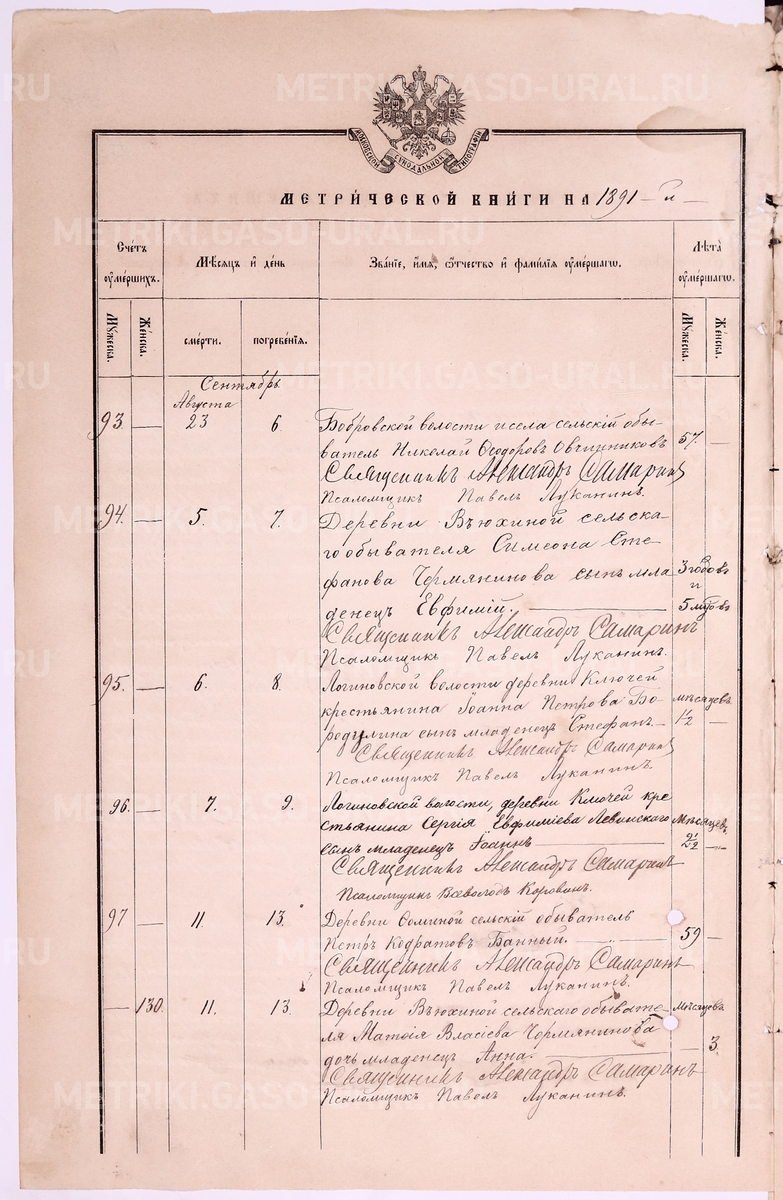 МОСКОВСКОЙ СѴНОДАЛЬНОЙ ТИПОГРАФІИ
МЕТРИ́ЧЕСКОЙ КНИ́ГИ НА 1891 – й –
Сче́тъ оуме́ршихъ.
Мѣ́сяцъ и де́нь
Зва́нїе, и́мѧ, ѻ҆́тчество и фами́лїѧ оуме́ршагѡ.
Лѣ́та оуме́ршагѡ.
Мꙋ́жеска.
Же́нска.
сме́рти.
погребе́нїѧ.
Мꙋ́жеска.
Же́нска.
Сентябрь.
Августа
93. — 23 6. Бобровской волости и села сельскій обы-
ватель Николай Ѳеодоровъ Овчинниковъ 57. —
Священникъ Александръ Самаринъ
Псаломщикъ Павелъ Луканинъ.
94. — 5. 7. Деревни Вьюхиной сельска-
го обывателя Симеона Сте-
фанова Чермянинова сынъ мла 3 годовъ
и
денецъ Евфимій. 5 м
Священникъ Александръ Самаринъ
Псаломщикъ Павелъ Луканинъ.
95. — 6. 8. Логиновской волости деревни Ключей
крестьянина Іоанна Петрова Бо- мѣсяцевъ
родулина сынъ младенецъ Стефанъ. 1½ —
Священникъ Александръ Самаринъ
Псаломщикъ Павелъ Луканинъ.
96. — 7. 9. Логиновской волости, деревни Ключей кре
стьянина Сергія Евфиміева Левинскаго Мѣсяцев.
сынъ младенецъ Іоаннъ 2½ —
Священникъ Александръ Самаринъ
Псаломщикъ Всеволодъ Коровинъ.
97 — 11. 13. Деревни Ѳоминой сельскій обыватель
Петръ Кодратовъ Банный. 59 —
Священникъ Александръ Самаринъ
Псаломщикъ Павелъ Луканинъ.
— 130. 11. 13. Деревни Вьюхиной сельскаго обывате- мѣсяцевъ
ля Матѳія Власіева Чермянинова
дочь младенецъ Анна. — 3.
Священникъ Александръ Самаринъ
Псаломщикъ Павелъ Луканинъ.
METRIKI.GASO-URAL.RU